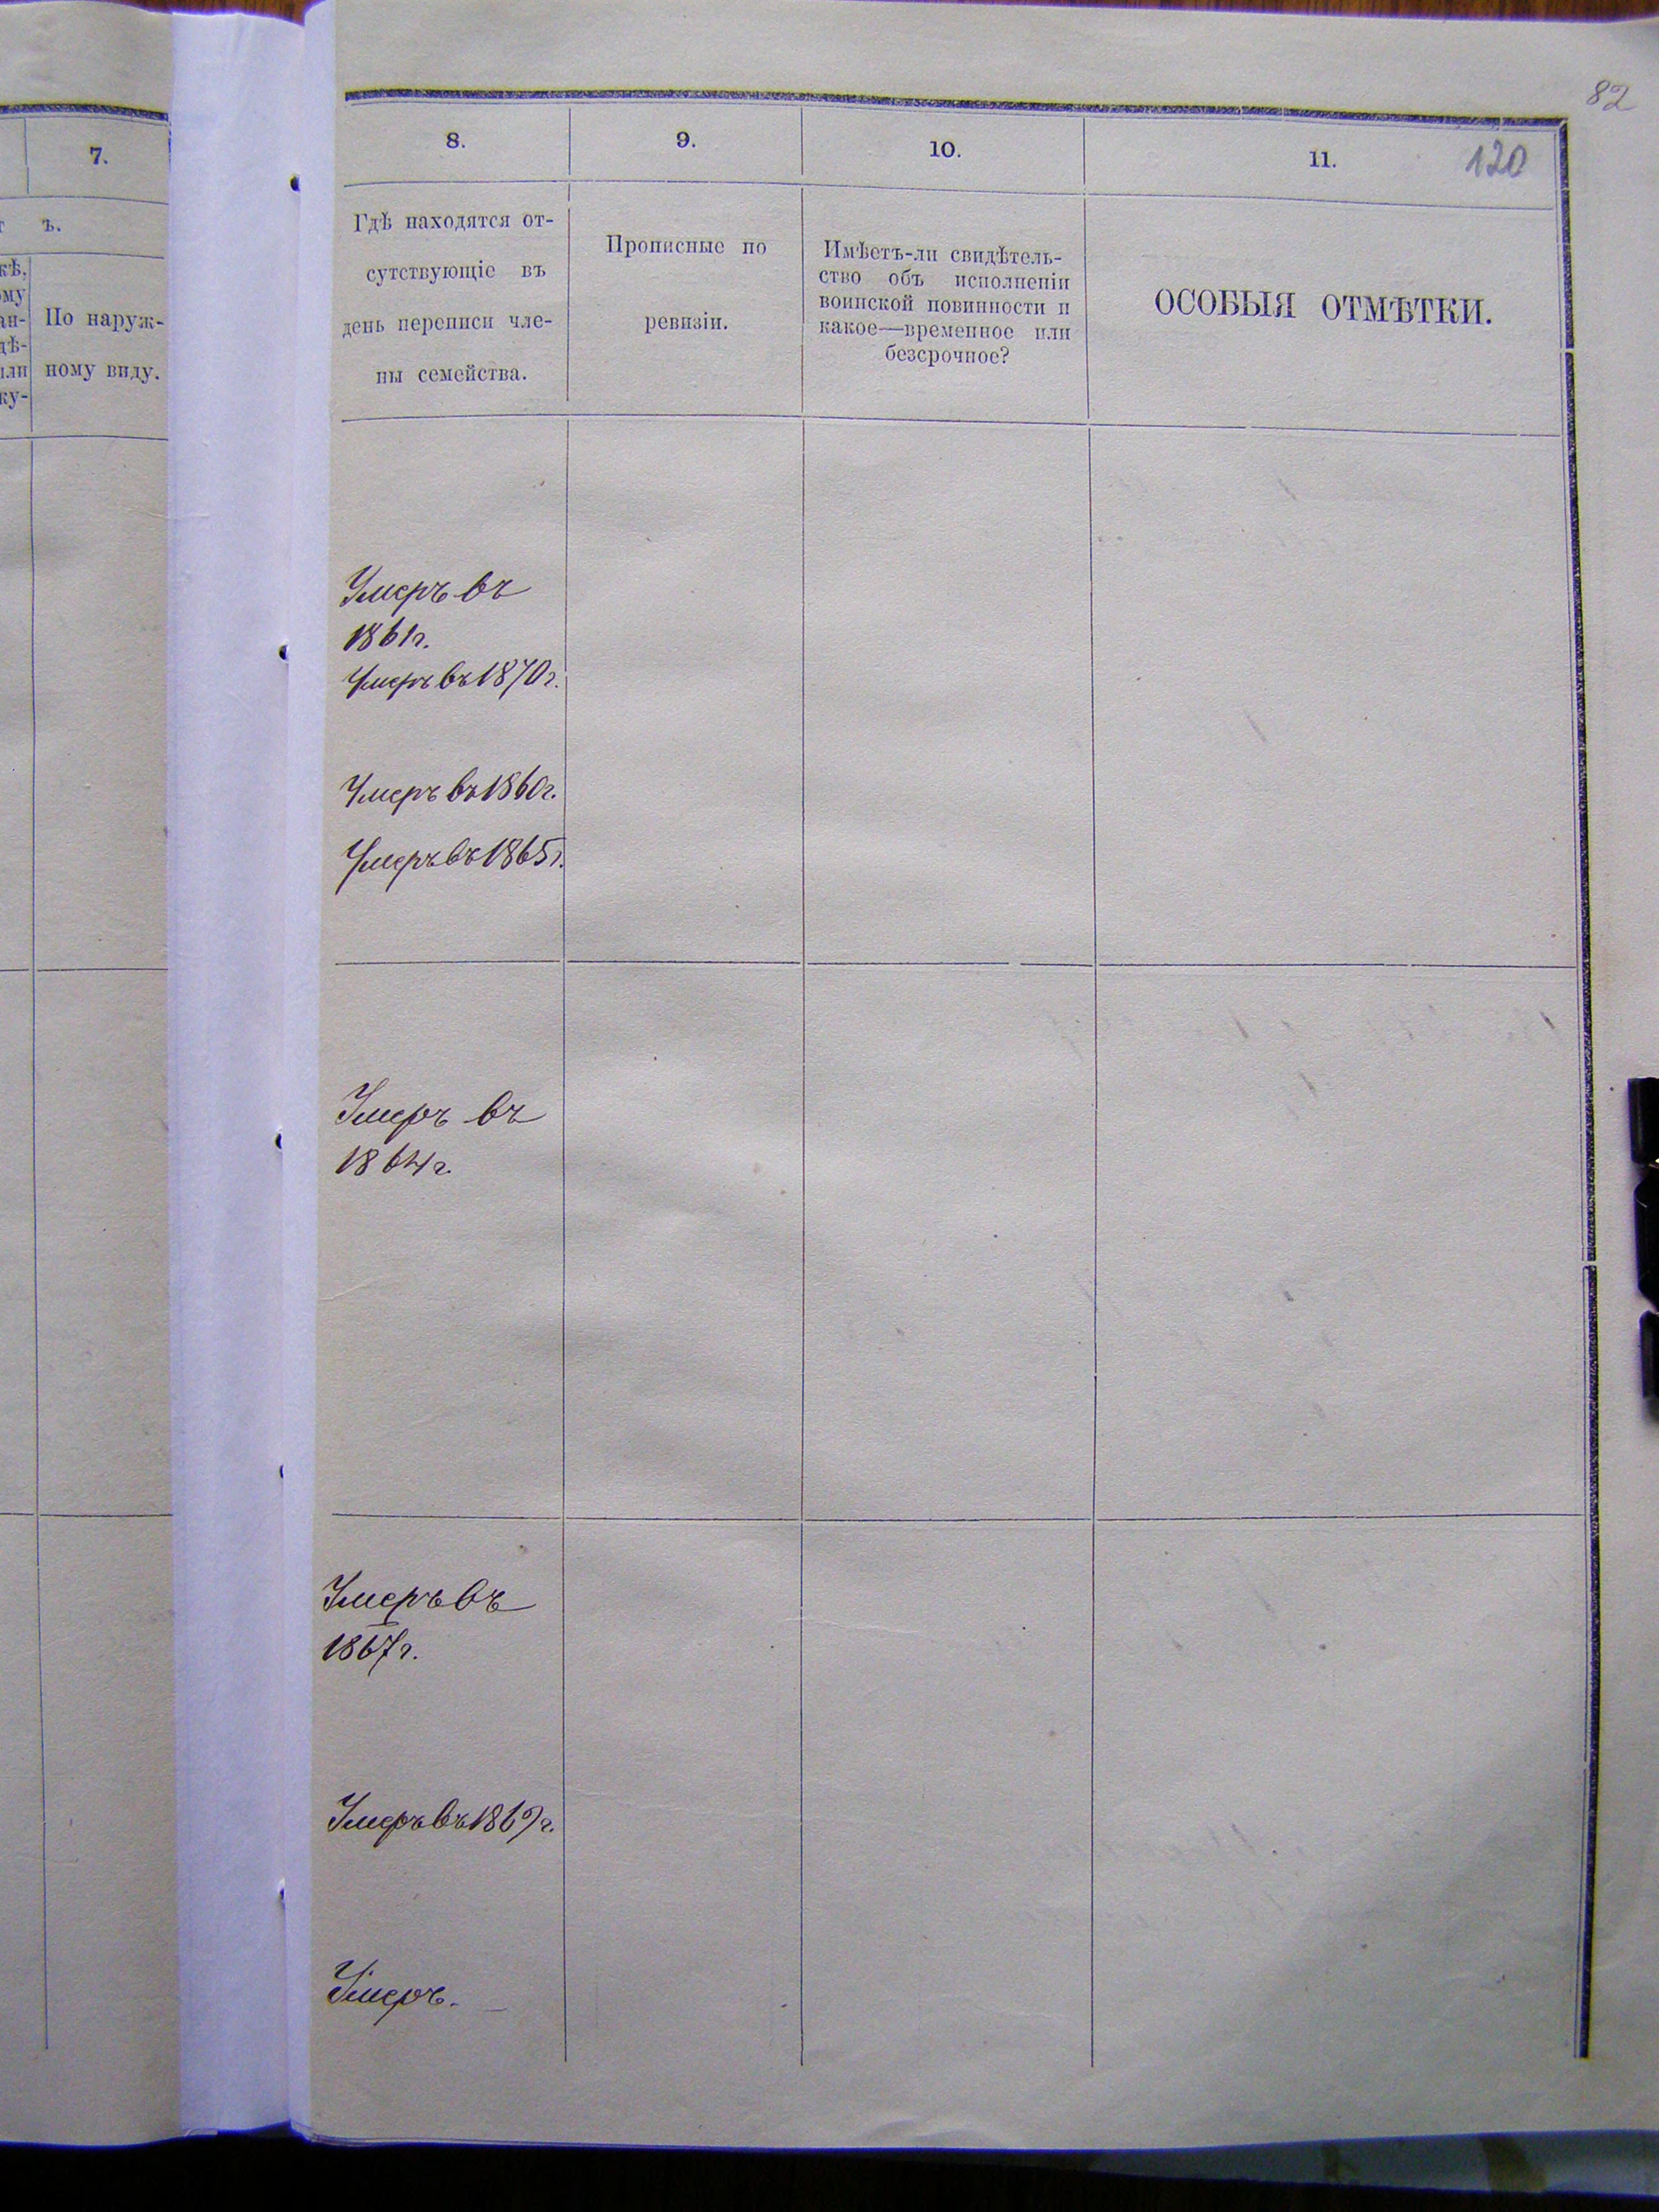 82
7.
ъ.
кѣ,
ому
ан-
дѣ-
или
ку-
По наруж-
ному виду.
8.
9.
10.
11.
120
Гдѣ находятся от-
сутствующіе въ
день переписи чле-
ны семейства.
Прописные по
ревизіи.
Имѣетъ-ли свидѣтель-
ство объ исполненіи
воинской повинности и
какое—временное или
безсрочное?
ОСОБЫЯ ОТМѢТКИ.
Умеръ въ
1861г.
Умеръ въ 1870г.
Умеръ въ 1860г.
Умеръ въ 1865г.
Умеръ въ
1864г.
Умеръ въ
1867г.
Умеръ въ 1869г.
Умеръ.